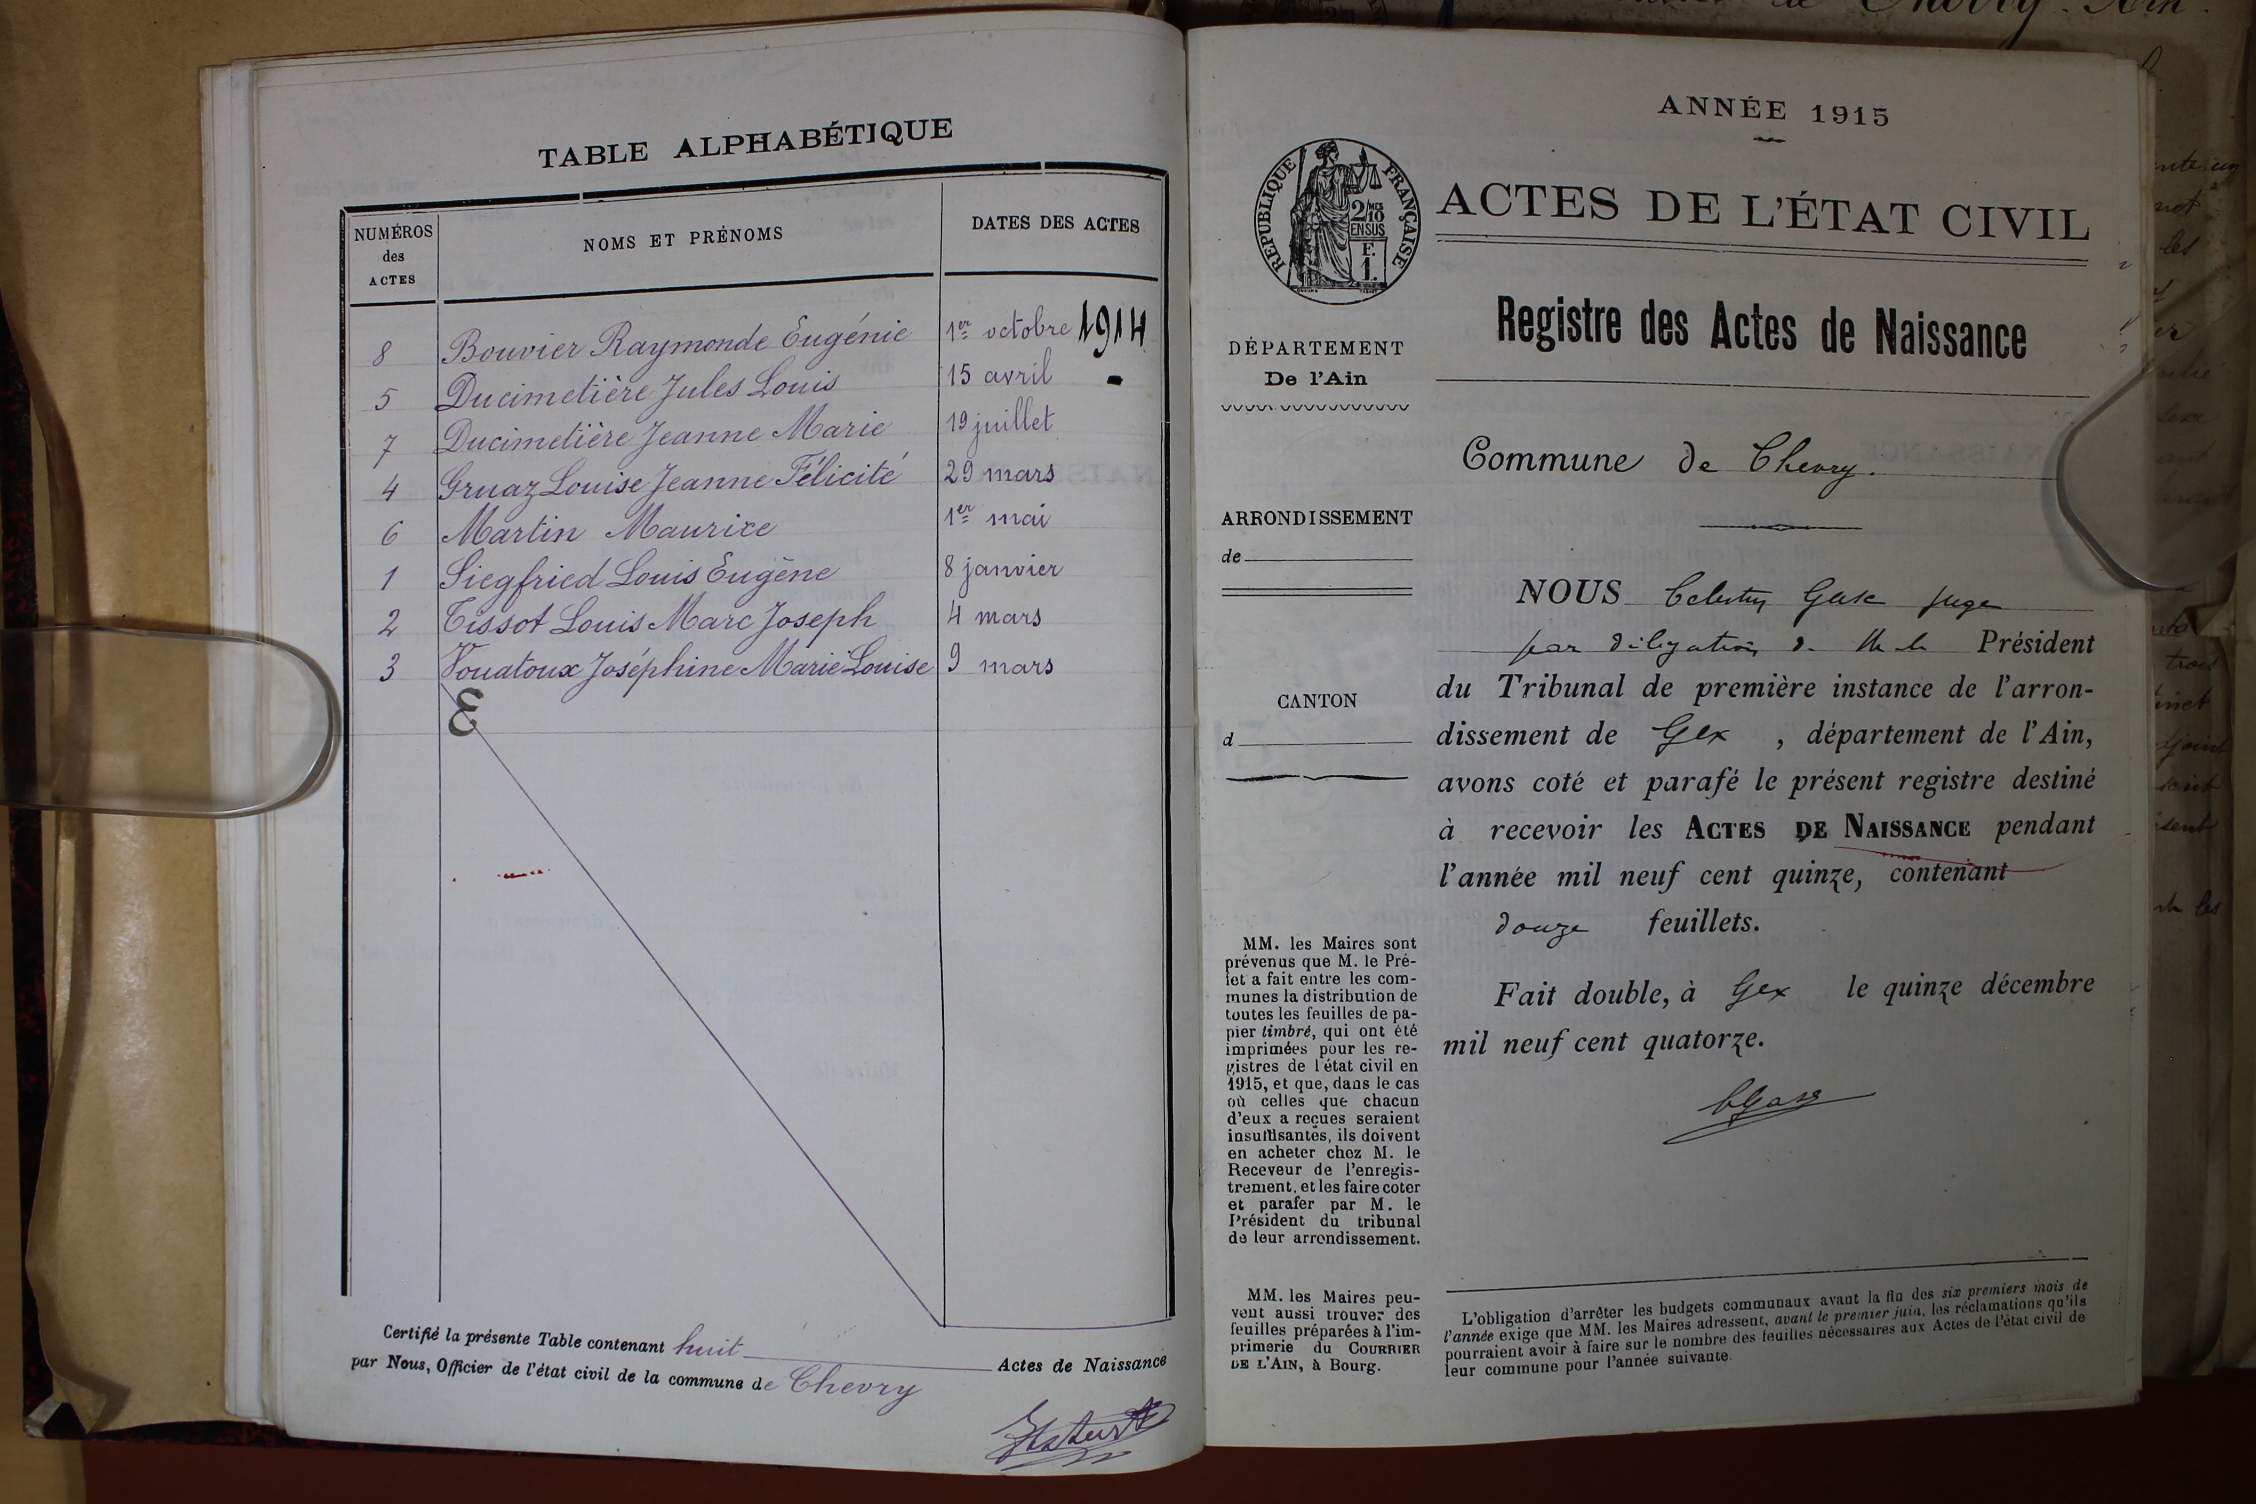 TABLE ALPHABÉTIQUE
NUMÉROS des ACTES
NOMS ET PRÉNOMS
DATES DES ACTES
8 Bouvier Raymonde Eugénie 1er octobre 1914
5 Ducimetière Jules Louis 15 avril -
7 Ducimetière Jeanne Marie 19 juillet
4 Gruaz Louise Jeanne Félicité 29 mars
6 Martin Maurice 1er mai
1 Siegfried Louis Eugène 8 janvier
2 Tissot Louis Marc Joseph 4 mars
3 Vouatoux Joséphine Marie Louise 9 mars
Certifié la présente Table contenant huit Actes de Naissance
par Nous, Officier de l'état civil de la commune de Chevry
ANNÉE 1915
RÉPUBLIQUE FRANÇAISE
2/10 MES
EN SUS
F.
1.
ACTES DE L'ÉTAT CIVIL
Registre des Actes de Naissance
DÉPARTEMENT
De l'Ain
Commune de Chevry.
ARRONDISSEMENT
de
CANTON
d
NOUS Célestin Gase juge
par délégation de M. le Président
du Tribunal de première instance de l'arron-
dissement de Gex , département de l'Ain,
avons coté et parafé le présent registre destiné
à recevoir les ACTES DE NAISSANCE pendant
l'année mil neuf cent quinze, contenant
douze feuillets.
Fait double, à Gex le quinze décembre
mil neuf cent quatorze.
CGase
MM. les Maires sont
prévenus que M. le Pré-
fet a fait entre les com-
munes la distribution de
toutes les feuilles de pa-
pier timbré, qui ont été
imprimées pour les re-
gistres de l'état civil en
1915, et que, dans le cas
où celles que chacun
d'eux a reçues seraient
insuffisantes, ils doivent
en acheter chez M. le
Receveur de l'enregis-
trement, et les faire coter
et parafer par M. le
Président du tribunal
de leur arrondissement.
MM. les Maires peu-
vent aussi trouver des
feuilles préparées à l'im-
primerie du COURRIER
DE L'AIN, à Bourg.
L'obligation d'arrêter les budgets communaux avant la fin des six premiers mois de
l'année exige que MM. les Maires adressent, avant le premier juin, les réclamations qu'ils
pourraient avoir à faire sur le nombre des feuilles nécessaires aux Actes de l'état civil de
leur commune pour l'année suivante.